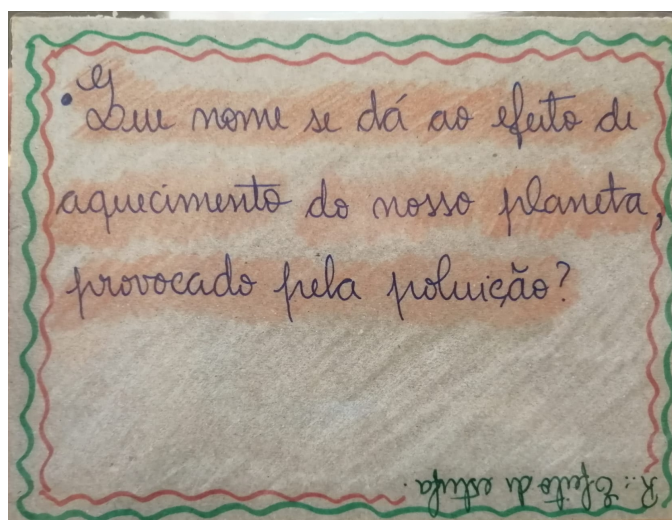 • Que nome se dá ao efeito de
aquecimento do nosso planeta,
provocado pela poluição?
R.: Efeito de estufa.